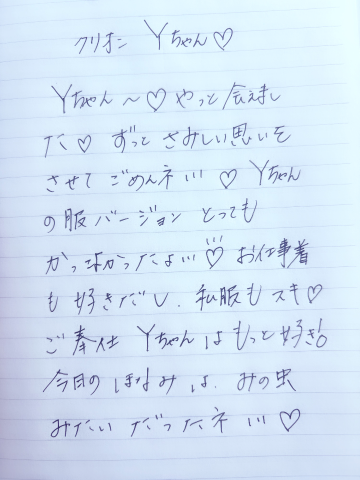 クリオン Yちゃん♡
Yちゃん〜♡やっと会えまし
た♡ ずっと さみしい思いを
させて ごめんネ!!! ♡ Yちゃん
の服バージョン とっても
かっ よかったよ!!!♡ お仕事着
も 好きだし、私服も スキ♡
ご奉仕 Yちゃんは もっと 好き!
今日の ほなみ は、みの虫
みたい だったネ !!! ♡